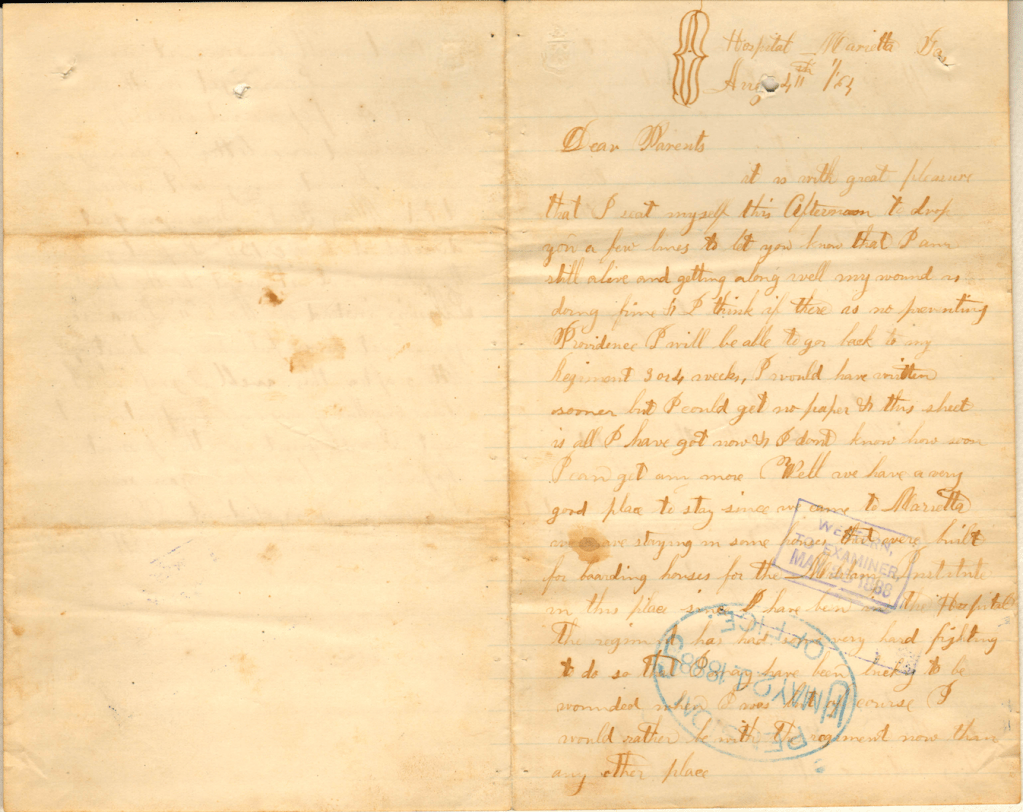 Hospital Marietta Ga
Aug 4th /64
Dear Parents
it is with great pleasure
that I seat myself this Afternoon to drop
you a few lines to let you know that I am
still alive and getting along well my wound is
doing fine & I think if there is no preventing
Providence I will be able to go back to my
Regiment 3 or 4 weeks, I would have written
sooner but I could get no paper & this sheet
is all I have got now & I dont know how soon
I can get any more Well we have a very
good place to stay since we came to Marietta
we are staying in some houses that were built
for boarding houses for the Military Institute
in this place since I have been in the Hospital
the regiment has had some very hard fighting
to do so that I may have been lucky to be
wounded when I was but of course I
would rather be with the regiment now than
any other place
WESTERN,
TO EXAMINER,
MAY 1888
PENSION
OFFICE.
MAY 24 1888